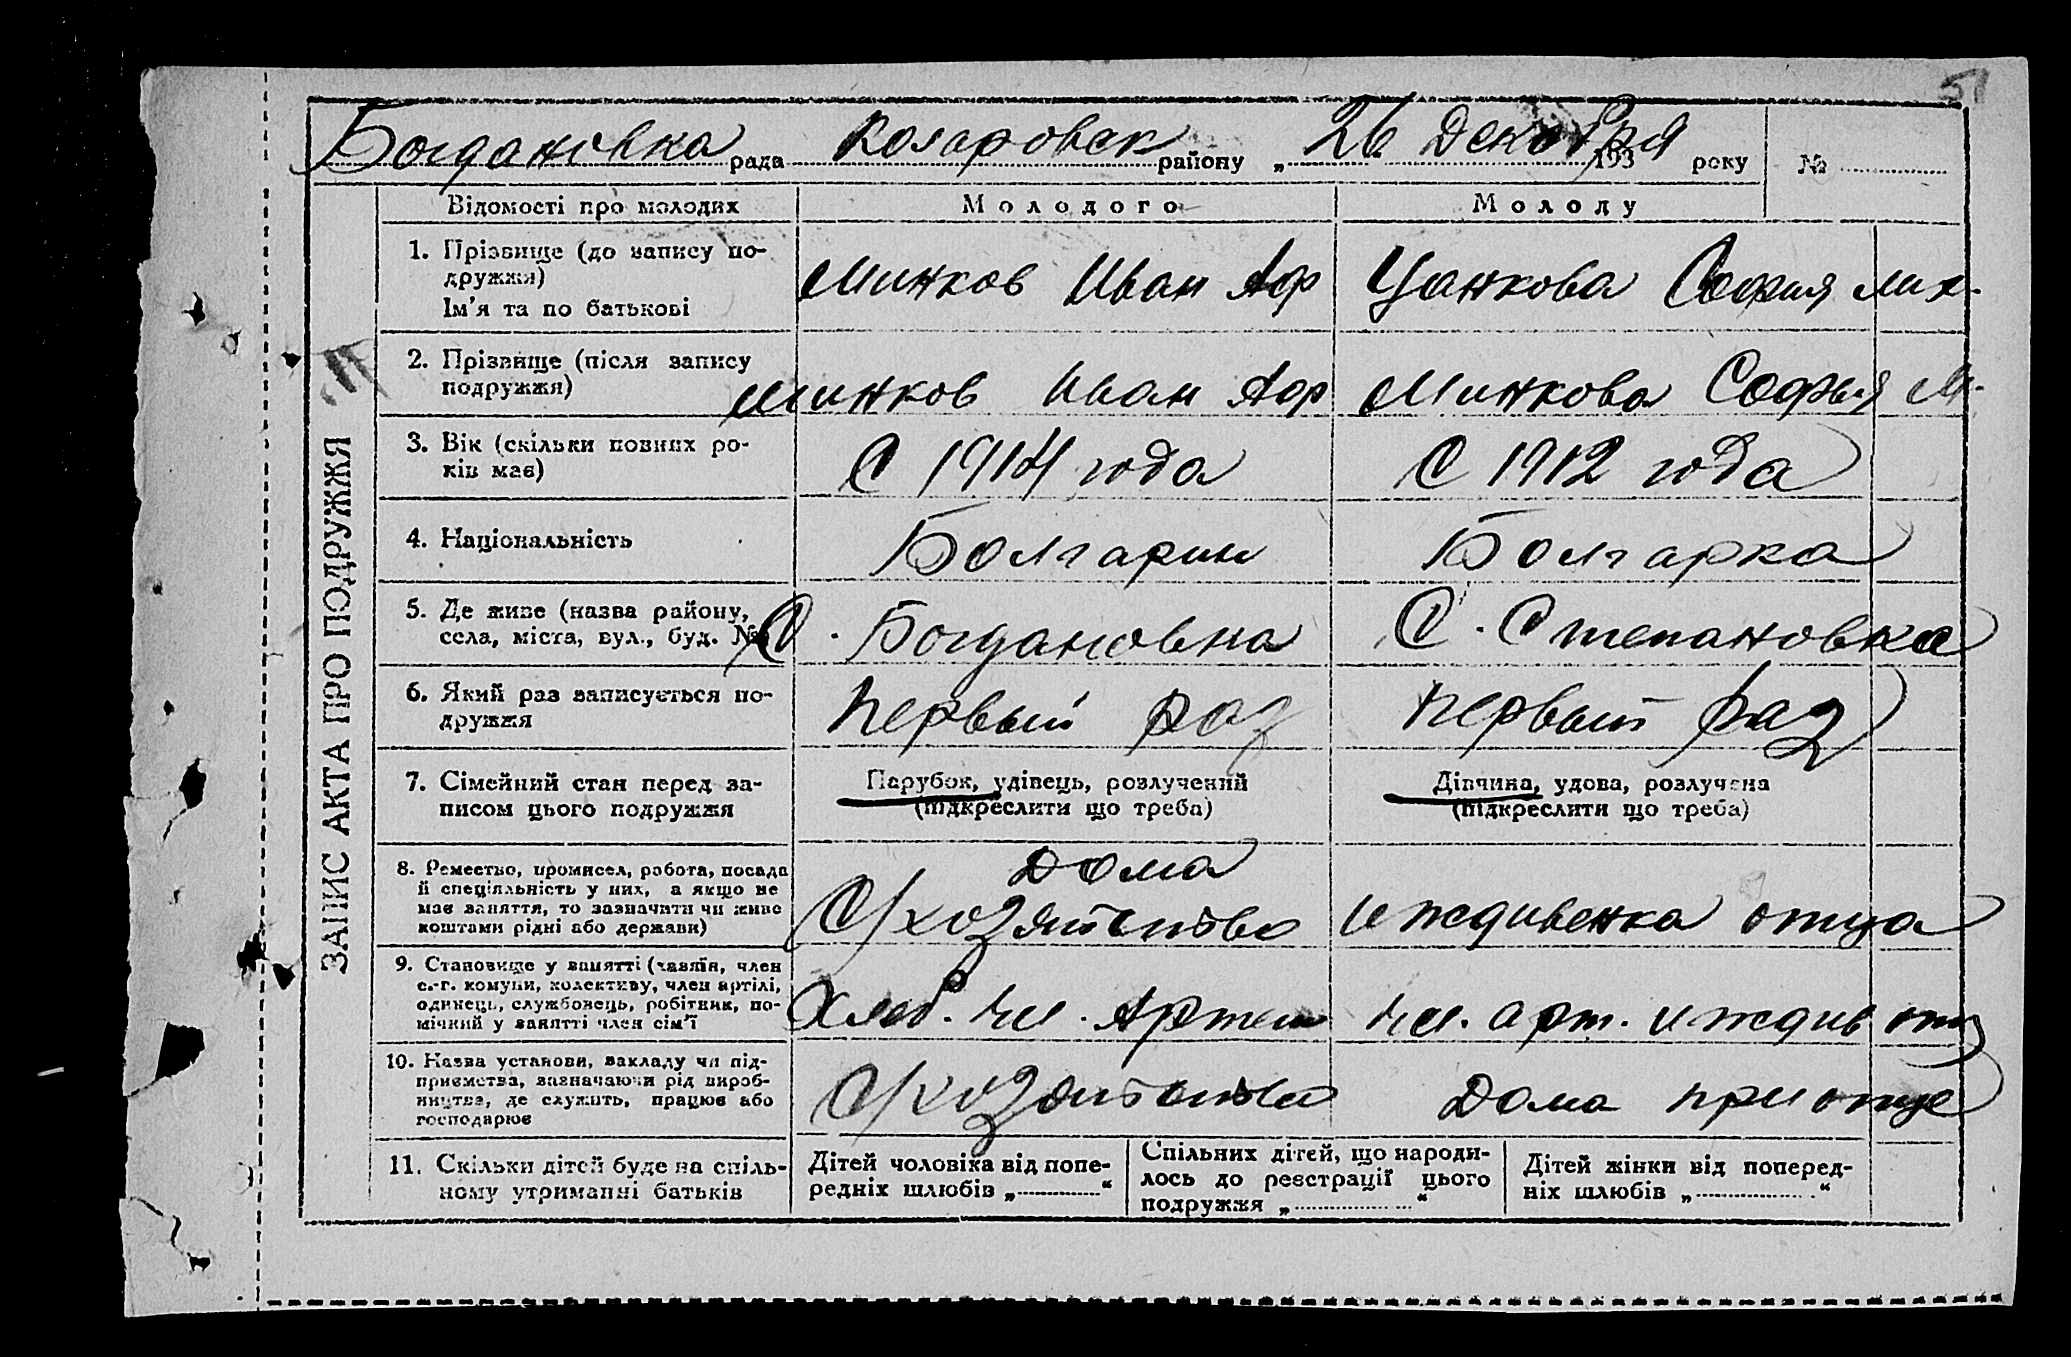 51
Богдановка рада Коларовск району „ 26 Декабря 193 року №
ЗАПИС АКТА ПРО ПОДРУЖЖЯ
Відомості про молодих Молодого Молоду
1. Прізвище (до запису по-
дружжя)
Ім'я та по батькові
Минков Иван Аф Цанкова София Мих.
2. Прізвище (після запису
подружжя)
Минков Иван Аф Минкова Софья М.
3. Вік (скільки повних ро-
ків має)
С 1914 года С 1912 года
4. Національність Болгарин Болгарка
5. Де живе (назва району,
села, міста, вул., буд. №)
С. Богдановка С. Степановка
6. Який раз записується по-
дружжя
первый раз первый раз
7. Сімейний стан перед за-
писом цього подружжя
Парубок, удівець, розлучений
(підкреслити що треба)
Дівчина, удова, розлучена
(підкреслити що треба)
8. Ремество, промисел, робота, посада
й спеціяльність у них, а якщо не
має заняття, то зазначити чи живе
коштами рідні або держави)
Дома
С/хозяйство иждивенка отца
9. Становище у занятті (хазяїн, член
с.-г. комуни, колективу, член артілі,
одинець, службовець, робітник, по-
мічний у занятті член сім'ї
Хлеб. чл. Артели чл. арт. иждив отц
10. Назва установи, закладу чи під-
приємства, зазначаючи рід вироб-
ництва, де служить, працює або
господарює
С/хозяйство Дома при отце
11. Скільки дітей буде на спіль-
ному утриманні батьків
Дітей чоловіка від попе-
редніх шлюбів „ “
Спільних дітей, що народи-
лось до реєстрації цього
подружжя „ “
Дітей жінки від поперед-
ніх шлюбів „ “